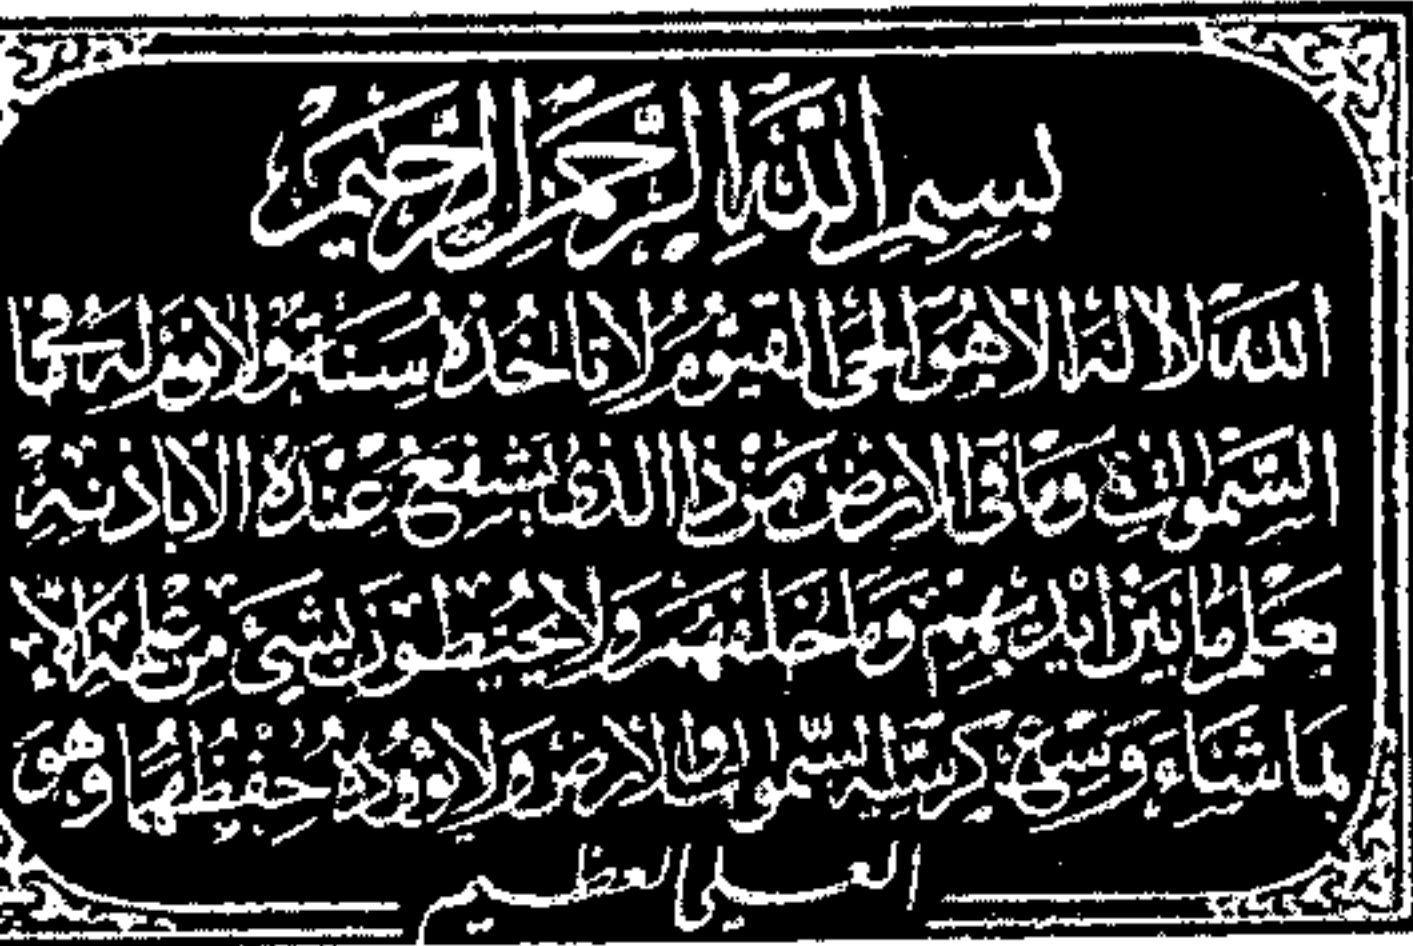 بِسْمِ اللَّهِ الرَّحْمَنِ الرَّحِيمِ
اللَّهُ لَا إِلَهَ إِلَّا هُوَ الْحَيُّ الْقَيُّومُ لَا تَأْخُذُهُ سِنَةٌ وَلَا نَوْمٌ لَهُ مَا فِي
السَّمَوَاتِ وَمَا فِي الْأَرْضِ مَنْ ذَا الَّذِي يَشْفَعُ عِنْدَهُ إِلَّا بِإِذْنِهِ
يَعْلَمُ مَا بَيْنَ أَيْدِيهِمْ وَمَا خَلْفَهُمْ وَلَا يُحِيطُونَ بِشَيْءٍ مِنْ عِلْمِهِ إِلَّا
بِمَا شَاءَ وَسِعَ كُرْسِيُّهُ السَّمَوَاتِ وَالْأَرْضَ وَلَا يَئُودُهُ حِفْظُهُمَا وَهُوَ
الْعَلِيُّ الْعَظِيمُ